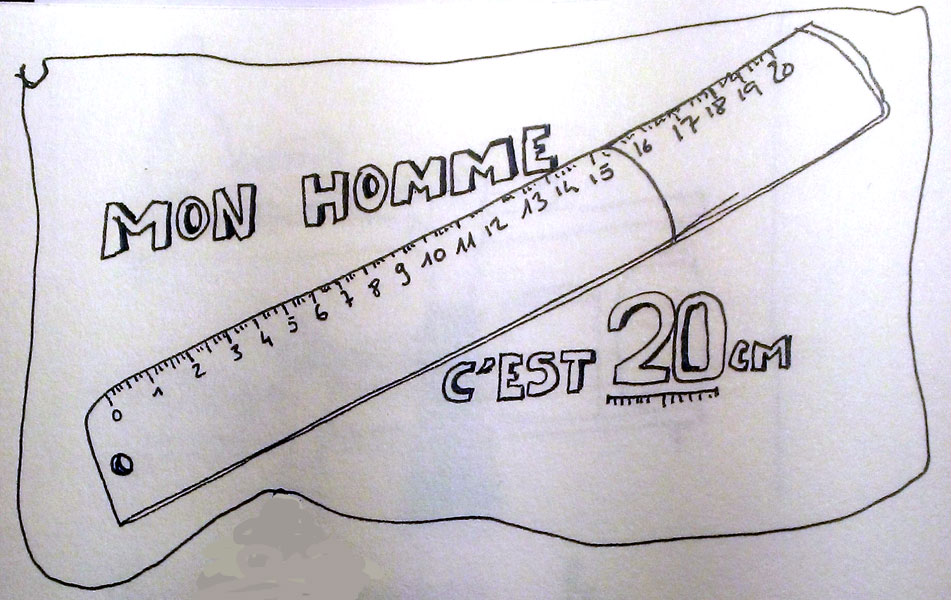 MON HOMME
0 1 2 3 4 5 6 7 8 9 10 11 12 13 14 15 16 17 18 19 20
C'EST 20 CM